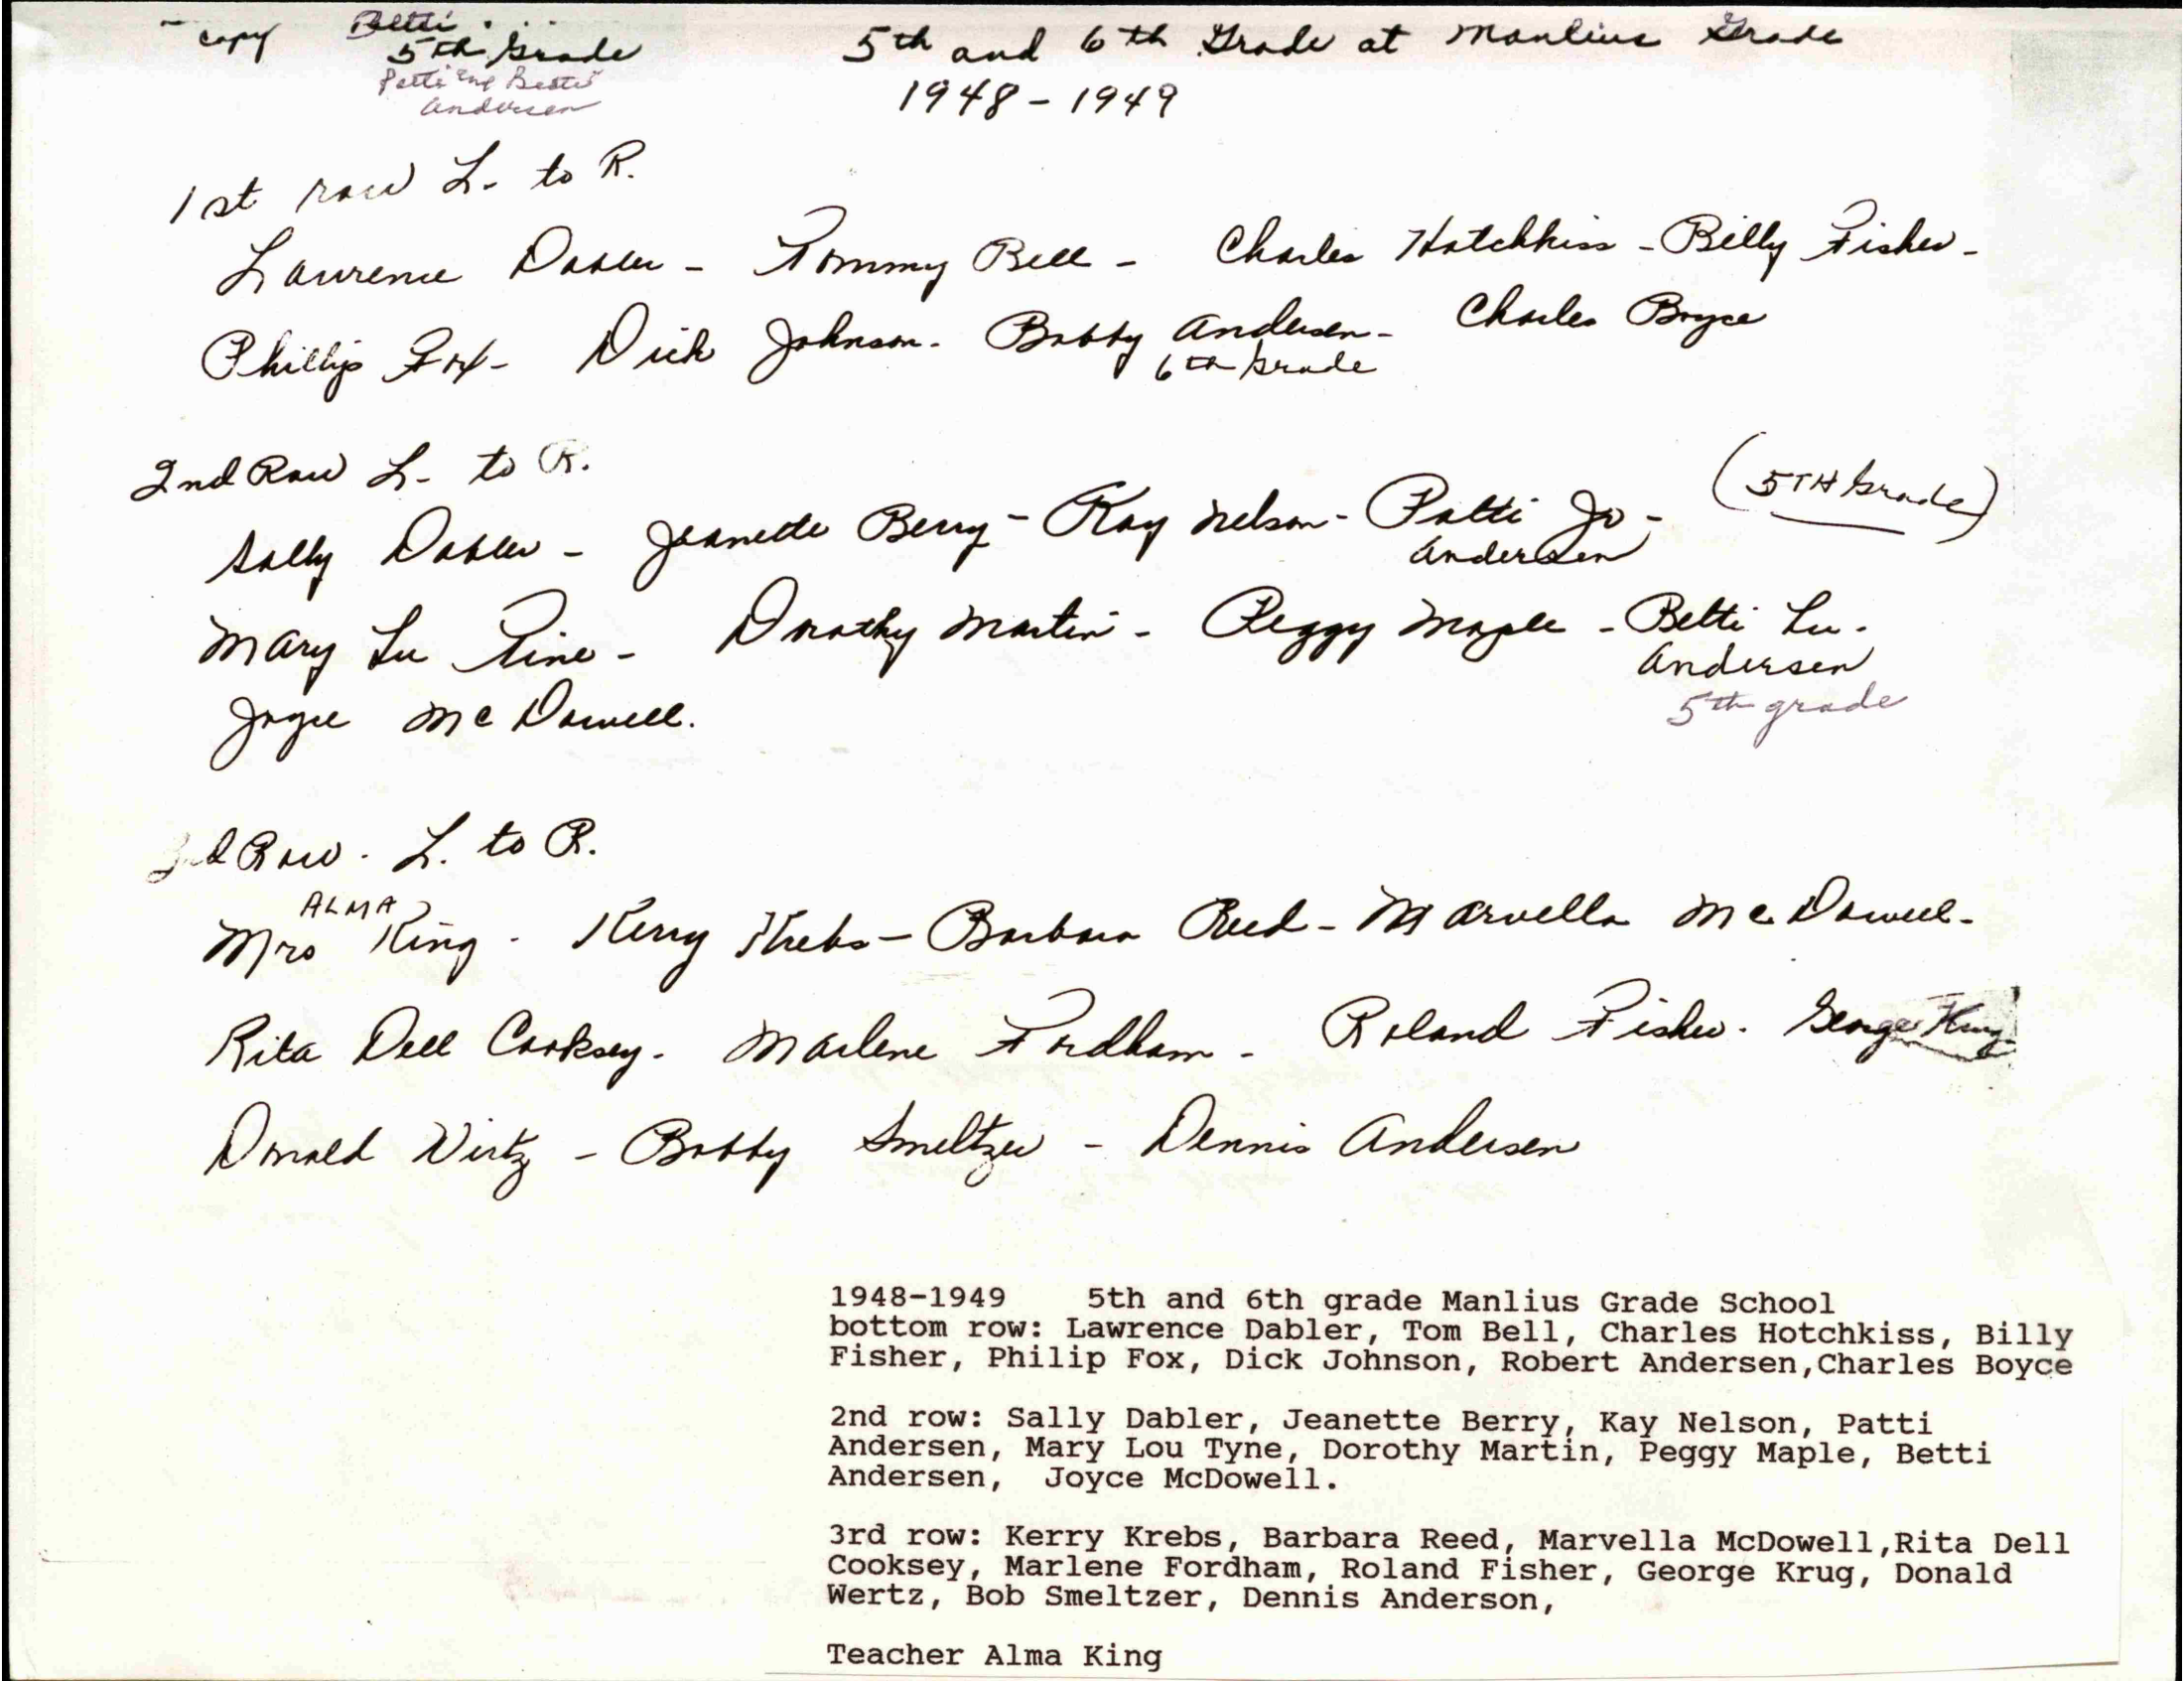 copy Betti
5th Grade
Patti and Betti
Andersen
5th and 6th Grade at Manlius Grade
1948-1949
1st row L. to R.
Lawrence Dabler - Tommy Bell - Charles Hotchkiss - Billy Fisher -
Phillip Fox - Dick Johnson. Bobby Andersen - Charles Boyce
6th Grade
2nd Row L. to R.
Sally Dabler - Jeanette Berry - Kay Nelson - Patti Jo - (5TH Grade)
Andersen
Mary Lu Tine - Dorothy Martin - Peggy Maple - Betti Lu.
Andersen
Joyce McDowell. 5th grade
3rd Row. L. to R.
ALMA
Mrs King. Kerry Krebs - Barbara Reed - Marvella McDowell -
Rita Dell Cooksey. Marlene Fordham - Roland Fisher. George Krug
Donald Wirtz - Bobby Smeltzer - Dennis Andersen
1948-1949 5th and 6th grade Manlius Grade School
bottom row: Lawrence Dabler, Tom Bell, Charles Hotchkiss, Billy
Fisher, Philip Fox, Dick Johnson, Robert Andersen,Charles Boyce
2nd row: Sally Dabler, Jeanette Berry, Kay Nelson, Patti
Andersen, Mary Lou Tyne, Dorothy Martin, Peggy Maple, Betti
Andersen, Joyce McDowell.
3rd row: Kerry Krebs, Barbara Reed, Marvella McDowell,Rita Dell
Cooksey, Marlene Fordham, Roland Fisher, George Krug, Donald
Wertz, Bob Smeltzer, Dennis Anderson,
Teacher Alma King